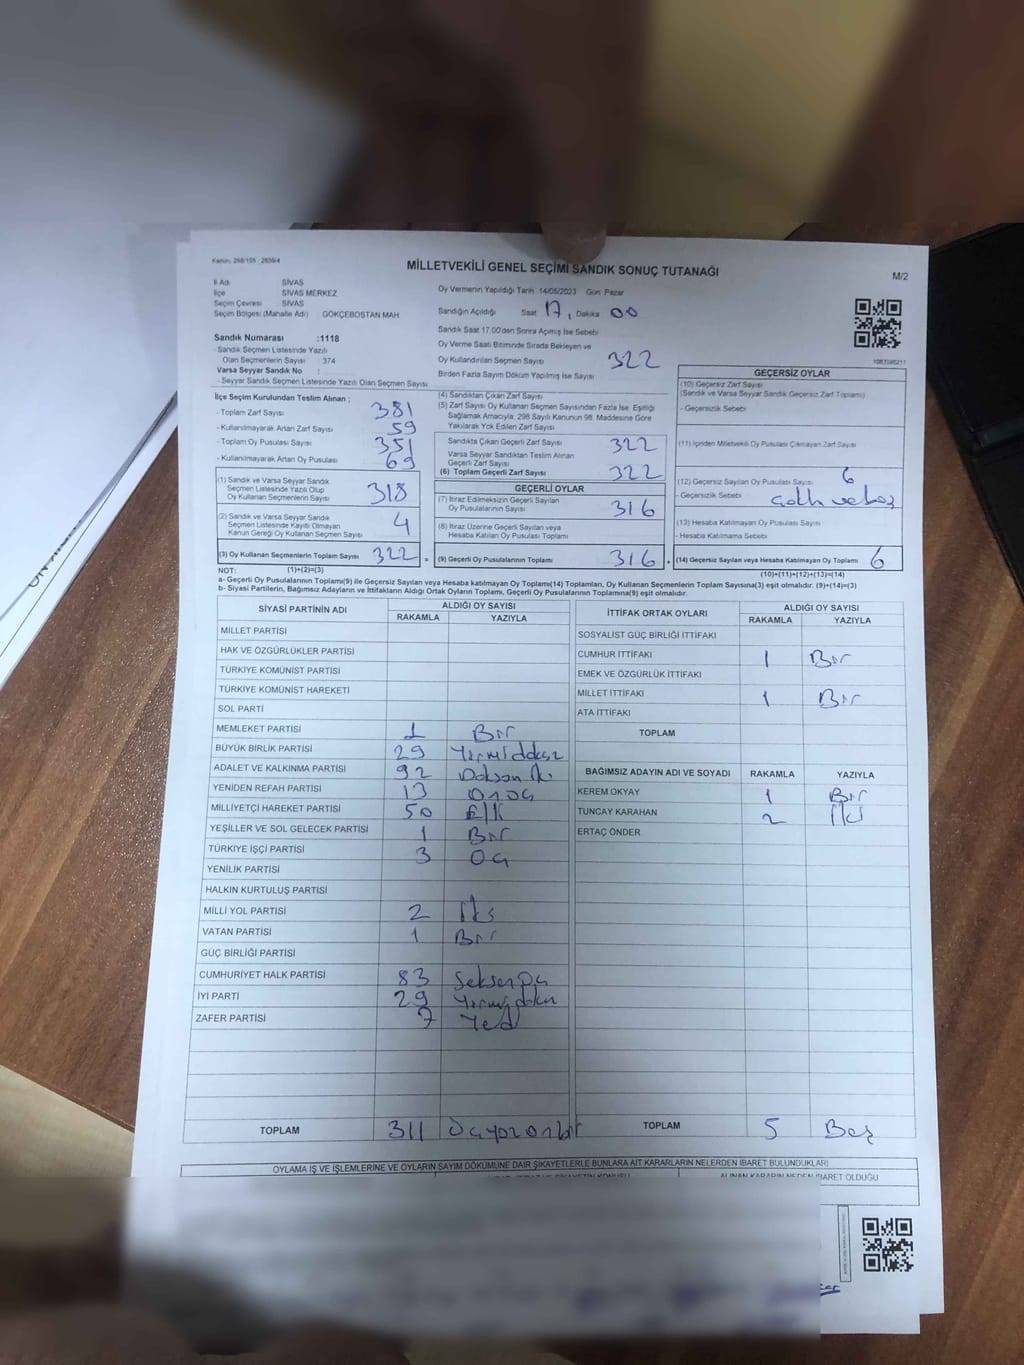 Kanun, 298/105 ; 2839/4
MİLLETVEKİLİ GENEL SEÇİMİ SANDIK SONUÇ TUTANAĞI
M/2
İl Adı SİVAS
İlçe SİVAS MERKEZ
Seçim Çevresi SİVAS
Seçim Bölgesi (Mahalle Adı) GÖKÇEBOSTAN MAH
Oy Vermenin Yapıldığı Tarih 14/05/2023 Gün Pazar
Sandığın Açıldığı Saat 17, Dakika 00
Sandık Saat 17.00'den Sonra Açılmış İse Sebebi
Oy Verme Saati Bitiminde Sırada Bekleyen ve
Oy Kullandırılan Seçmen Sayısı 322
Birden Fazla Sayım Döküm Yapılmış İse Sayısı
Sandık Numarası :1118
- Sandık Seçmen Listesinde Yazılı
Olan Seçmenlerin Sayısı : 374
Varsa Seyyar Sandık No :
- Seyyar Sandık Seçmen Listesinde Yazılı Olan Seçmen Sayısı
İlçe Seçim Kurulundan Teslim Alınan ;
- Toplam Zarf Sayısı 381
- Kullanılmayarak Artan Zarf Sayısı 59
- Toplam Oy Pusulası Sayısı 351
- Kullanılmayarak Artan Oy Pusulası 69
(1) Sandık ve Varsa Seyyar Sandık
Seçmen Listesinde Yazılı Olup
Oy Kullanan Seçmenlerin Sayısı 318
(2) Sandık ve Varsa Seyyar Sandık
Seçmen Listesinde Kayıtlı Olmayan
Kanun Gereği Oy Kullanan Seçmen Sayısı 4
(3) Oy Kullanan Seçmenlerin Toplam Sayısı 322
(4) Sandıktan Çıkan Zarf Sayısı
(5) Zarf Sayısı Oy Kullanan Seçmen Sayısından Fazla İse, Eşitliği
Sağlamak Amacıyla; 298 Sayılı Kanunun 98. Maddesine Göre
Yakılarak Yok Edilen Zarf Sayısı
Sandıkta Çıkan Geçerli Zarf Sayısı 322
Varsa Seyyar Sandıktan Teslim Alınan
Geçerli Zarf Sayısı
(6) Toplam Geçerli Zarf Sayısı 322
GEÇERLİ OYLAR
(7) İtiraz Edilmeksizin Geçerli Sayılan
Oy Pusulalarının Sayısı 316
(8) İtiraz Üzerine Geçerli Sayılan veya
Hesaba Katılan Oy Pusulası Toplamı
= (9) Geçerli Oy Pusulalarının Toplamı 316
GEÇERSİZ OYLAR
(10) Geçersiz Zarf Sayısı
(Sandık ve Varsa Seyyar Sandık Geçersiz Zarf Toplamı)
- Geçersizlik Sebebi
(11) İçinden Milletvekili Oy Pusulası Çıkmayan Zarf Sayısı
(12) Geçersiz Sayılan Oy Pusulası Sayısı 6
- Geçersizlik Sebebi
(13) Hesaba Katılmayan Oy Pusulası Sayısı
- Hesaba Katılmama Sebebi
+ (14) Geçersiz Sayılan veya Hesaba Katılmayan Oy Toplamı 6
NOT: (1)+(2)=(3)
(10)+(11)+(12)+(13)=(14)
a- Geçerli Oy Pusulalarının Toplamı(9) ile Geçersiz Sayılan veya Hesaba katılmayan Oy Toplamı(14) Toplamları, Oy Kullanan Seçmenlerin Toplam Sayısına(3) eşit olmalıdır. (9)+(14)=(3)
b- Siyasi Partilerin, Bağımsız Adayların ve İttifakların Aldığı Ortak Oyların Toplamı, Geçerli Oy Pusulalarının Toplamına(9) eşit olmalıdır.
SİYASİ PARTİNİN ADI ALDIĞI OY SAYISI
RAKAMLA YAZIYLA
MİLLET PARTİSİ
HAK VE ÖZGÜRLÜKLER PARTİSİ
TÜRKİYE KOMÜNİST PARTİSİ
TÜRKİYE KOMÜNİST HAREKETİ
SOL PARTİ
MEMLEKET PARTİSİ 1 Bir
BÜYÜK BİRLİK PARTİSİ 29 Yirmidokuz
ADALET VE KALKINMA PARTİSİ 92 Doksan iki
YENİDEN REFAH PARTİSİ 13 Onüç
MİLLİYETÇİ HAREKET PARTİSİ 50 Elli
YEŞİLLER VE SOL GELECEK PARTİSİ 1 Bir
TÜRKİYE İŞÇİ PARTİSİ 3 Üç
YENİLİK PARTİSİ
HALKIN KURTULUŞ PARTİSİ
MİLLİ YOL PARTİSİ 2 İki
VATAN PARTİSİ 1 Bir
GÜÇ BİRLİĞİ PARTİSİ
CUMHURİYET HALK PARTİSİ 83 Seksenüç
İYİ PARTİ 29 Yirmidokuz
ZAFER PARTİSİ 7 Yedi
TOPLAM 311 Üçyüzonbir
İTTİFAK ORTAK OYLARI ALDIĞI OY SAYISI
RAKAMLA YAZIYLA
SOSYALİST GÜÇ BİRLİĞİ İTTİFAKI
CUMHUR İTTİFAKI 1 Bir
EMEK VE ÖZGÜRLÜK İTTİFAKI
MİLLET İTTİFAKI 1 Bir
ATA İTTİFAKI
TOPLAM
BAĞIMSIZ ADAYIN ADI VE SOYADI RAKAMLA YAZIYLA
KEREM OKYAY 1 Bir
TUNCAY KARAHAN 2 İki
ERTAÇ ÖNDER
TOPLAM 5 Beş
OYLAMA İŞ VE İŞLEMLERİNE VE OYLARIN SAYIM DÖKÜMÜNE DAİR ŞİKAYETLERLE BUNLARA AİT KARARLARIN NELERDEN İBARET BULUNDUKLARI
ALINAN KARARIN NEDEN İBARET OLDUĞU